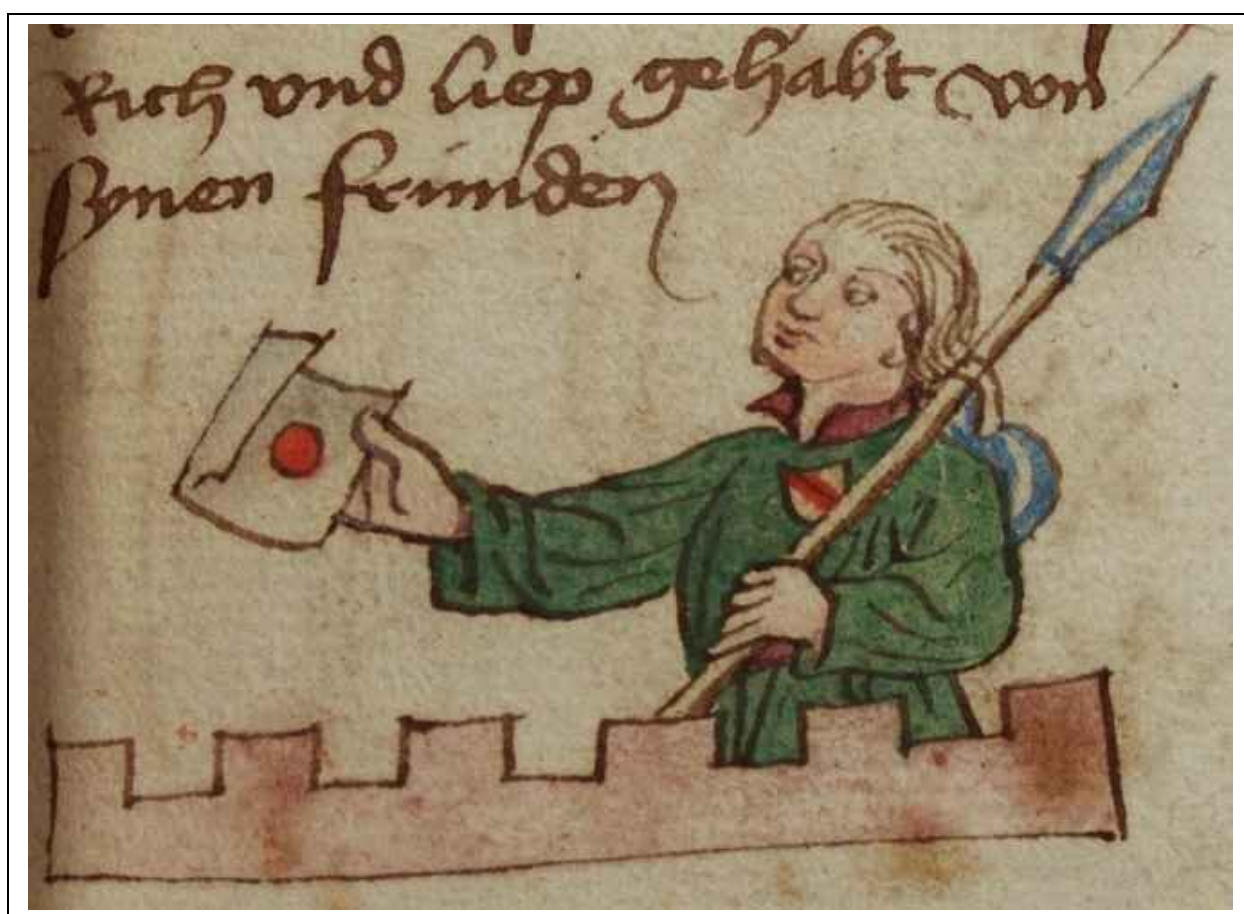 Rich vnd liep gehabt von
synen frunden